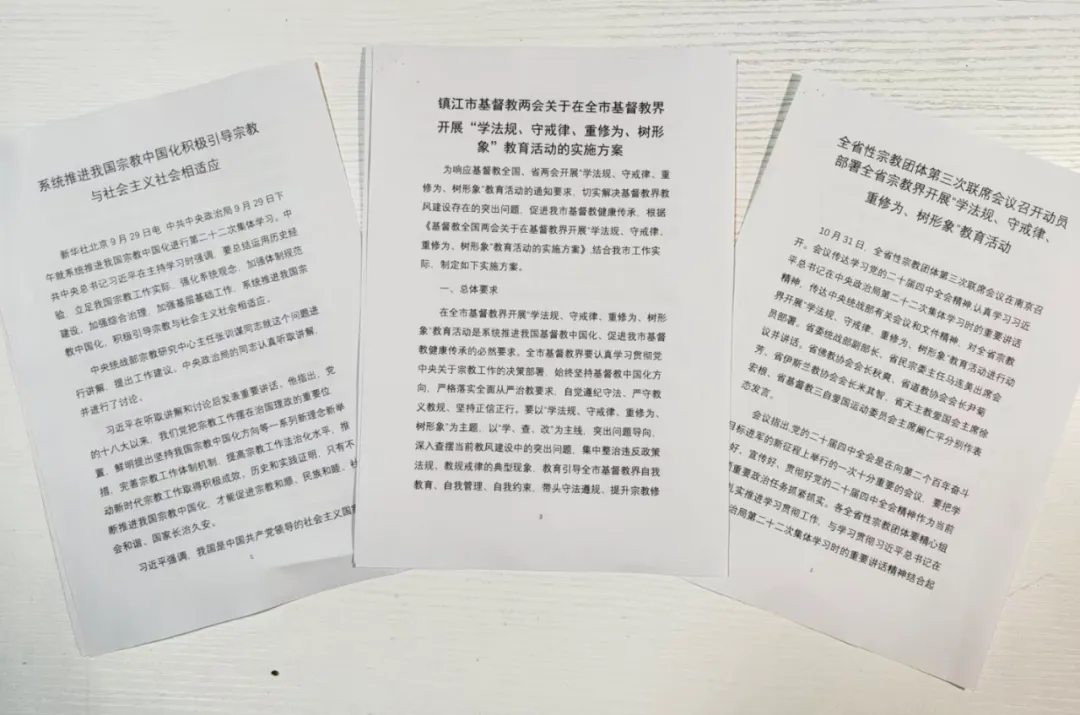 系统推进我国宗教中国化积极引导宗教
与社会主义社会相适应
新华社北京9月29日电 中共中央政治局9月29日下
午就系统推进我国宗教中国化进行第二十二次集体学习。中
共中央总书记习近平在主持学习时强调，要总结运用历史经
验，立足我国宗教工作实际，强化系统观念，加强体制规范
建设，加强综合治理，加强基层基础工作，系统推进我国宗
教中国化，积极引导宗教与社会主义社会相适应。
中央统战部宗教研究中心主任张训谋同志就这个问题进
行讲解，提出工作建议。中央政治局的同志认真听取讲解，
并进行了讨论。
习近平在听取讲解和讨论后发表重要讲话。他指出，党
的十八大以来，我们党把宗教工作摆在治国理政的重要位
置，鲜明提出坚持我国宗教中国化方向等一系列新理念新举
措，完善宗教工作体制机制，提高宗教工作法治化水平，推
动新时代宗教工作取得积极成效。历史和实践证明，只有不
断推进我国宗教中国化，才能促进宗教和顺、民族和睦、社
会和谐、国家长治久安。
习近平强调，我国是中国共产党领导的社会主义国
1
镇江市基督教两会关于在全市基督教界
开展“学法规、守戒律、重修为、树形
象”教育活动的实施方案
为响应基督教全国、省两会开展“学法规、守戒律、重
修为、树形象”教育活动的通知要求，切实解决基督教界教
风建设存在的突出问题，促进我市基督教健康传承，根据
《基督教全国两会关于在基督教界开展“学法规、守戒律、
重修为、树形象”教育活动的实施方案》，结合我市工作实
际，制定如下实施方案。
一、总体要求
在全市基督教界开展“学法规、守戒律、重修为、树形
象”教育活动是系统推进我国基督教中国化、促进我市基督
教健康传承的必然要求。全市基督教界要认真学习贯彻党
中央关于宗教工作的决策部署，始终坚持基督教中国化方
向，严格落实全面从严治教要求，自觉遵纪守法、严守教
义教规、坚持正信正行。要以“学法规、守戒律、重修为、
树形象”为主题，以“学、查、改”为主线，突出问题导向，
深入查摆当前教风建设中的突出问题，集中整治违反政策
法规、教规戒律的典型现象，教育引导全市基督教界自我
教育、自我管理、自我约束，带头守法遵规、提升宗教修
全省性宗教团体第三次联席会议召开动员
部署全省宗教界开展“学法规、守戒律、
重修为、树形象”教育活动
10月31日，全省性宗教团体第三次联席会议在南京召
开。会议传达学习党的二十届四中全会精神，认真学习习近
平总书记在中央政治局第二十二次集体学习时的重要讲话
精神，传达中央统战部有关会议和文件精神，对全省宗教
界开展“学法规、守戒律、重修为、树形象”教育活动进行动
员部署。省委统战部副部长、省民宗委主任马连美出席会
议并讲话。省佛教协会会长秋爽、省道教协会会长尹菊
芳、省伊斯兰教协会会长米其智、省天主教爱国会主席徐
宏根、省基督教三自爱国运动委员会主席阚仁平分别作表
态发言。
会议指出，党的二十届四中全会是在向第二个百年奋斗
目标进军的新征程上举行的一次十分重要的会议，要把学
好、宣传好、贯彻好党的二十届四中全会精神作为当前
重要政治任务抓紧抓实。各全省性宗教团体要精心组
扎实推进学习贯彻工作，与学习贯彻习近平总书记在
治局第二十二次集体学习时的重要讲话精神结合起